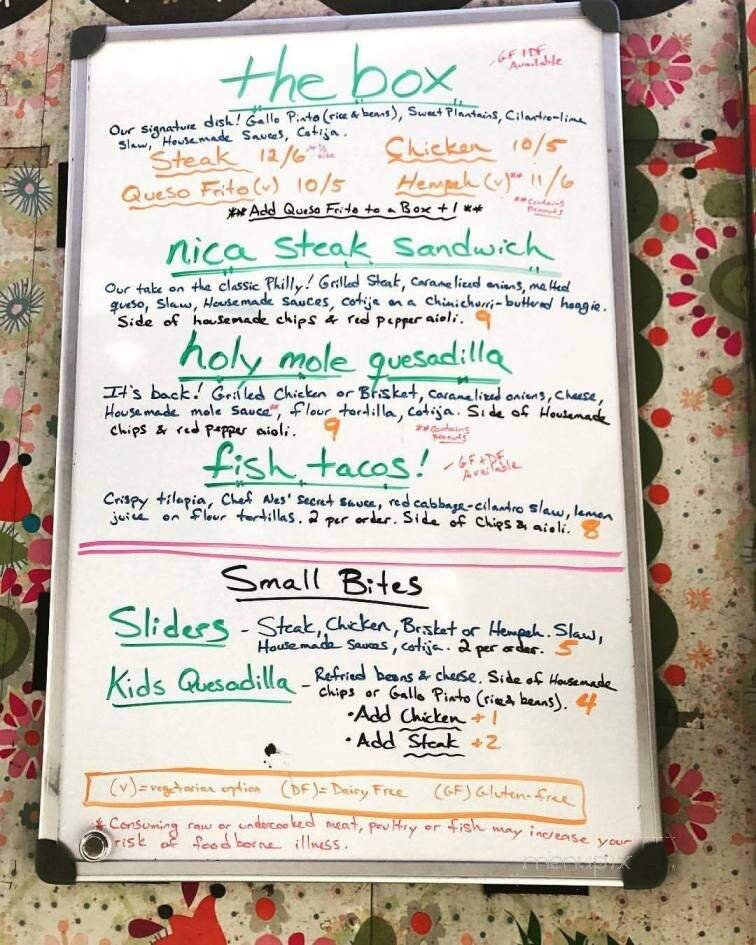 the box
GF+DF
Available
Our signature dish! Gallo Pinto (rice & beans), Sweet Plantains, Cilantro-lime
Slaw, Housemade Sauces, Cotija.
Steak 12/6 ** 1/2 size
Chicken 10/5
Queso Frito (v) 10/5
Hempeh (v)** 11/6
**Contains
Peanuts
** Add Queso Frito to a Box +1 **
nica steak sandwich
Our take on the classic Philly! Grilled Steak, caramelized onions, melted
queso, Slaw, Housemade Sauces, cotija on a Chimichurri-buttered hoagie.
Side of housemade chips & red pepper aioli. 9
holy mole quesadilla
It's back! Grilled Chicken or Brisket, caramelized onions, cheese,
Housemade mole sauce**, flour tortilla, cotija. Side of Housemade
chips & red pepper aioli. 9
**Contains
Peanuts
fish tacos!
GF+DF
Available
Crispy tilapia, Chef Nes' secret sauce, red cabbage-cilantro slaw, lemon
juice on flour tortillas. 2 per order. Side of Chips & aioli. 8
Small Bites
Sliders - Steak, Chicken, Brisket or Hempeh. Slaw,
Housemade Sauces, cotija. 2 per order. 5
Kids Quesadilla - Refried beans & cheese. Side of Housemade
chips or Gallo Pinto (rice & beans). 4
• Add Chicken +1
• Add Steak +2
(V)=vegetarian option (DF)=Dairy Free (GF) Gluten-free
* Consuming raw or undercooked meat, poultry or fish may increase your
risk of foodborne illness.
menupix